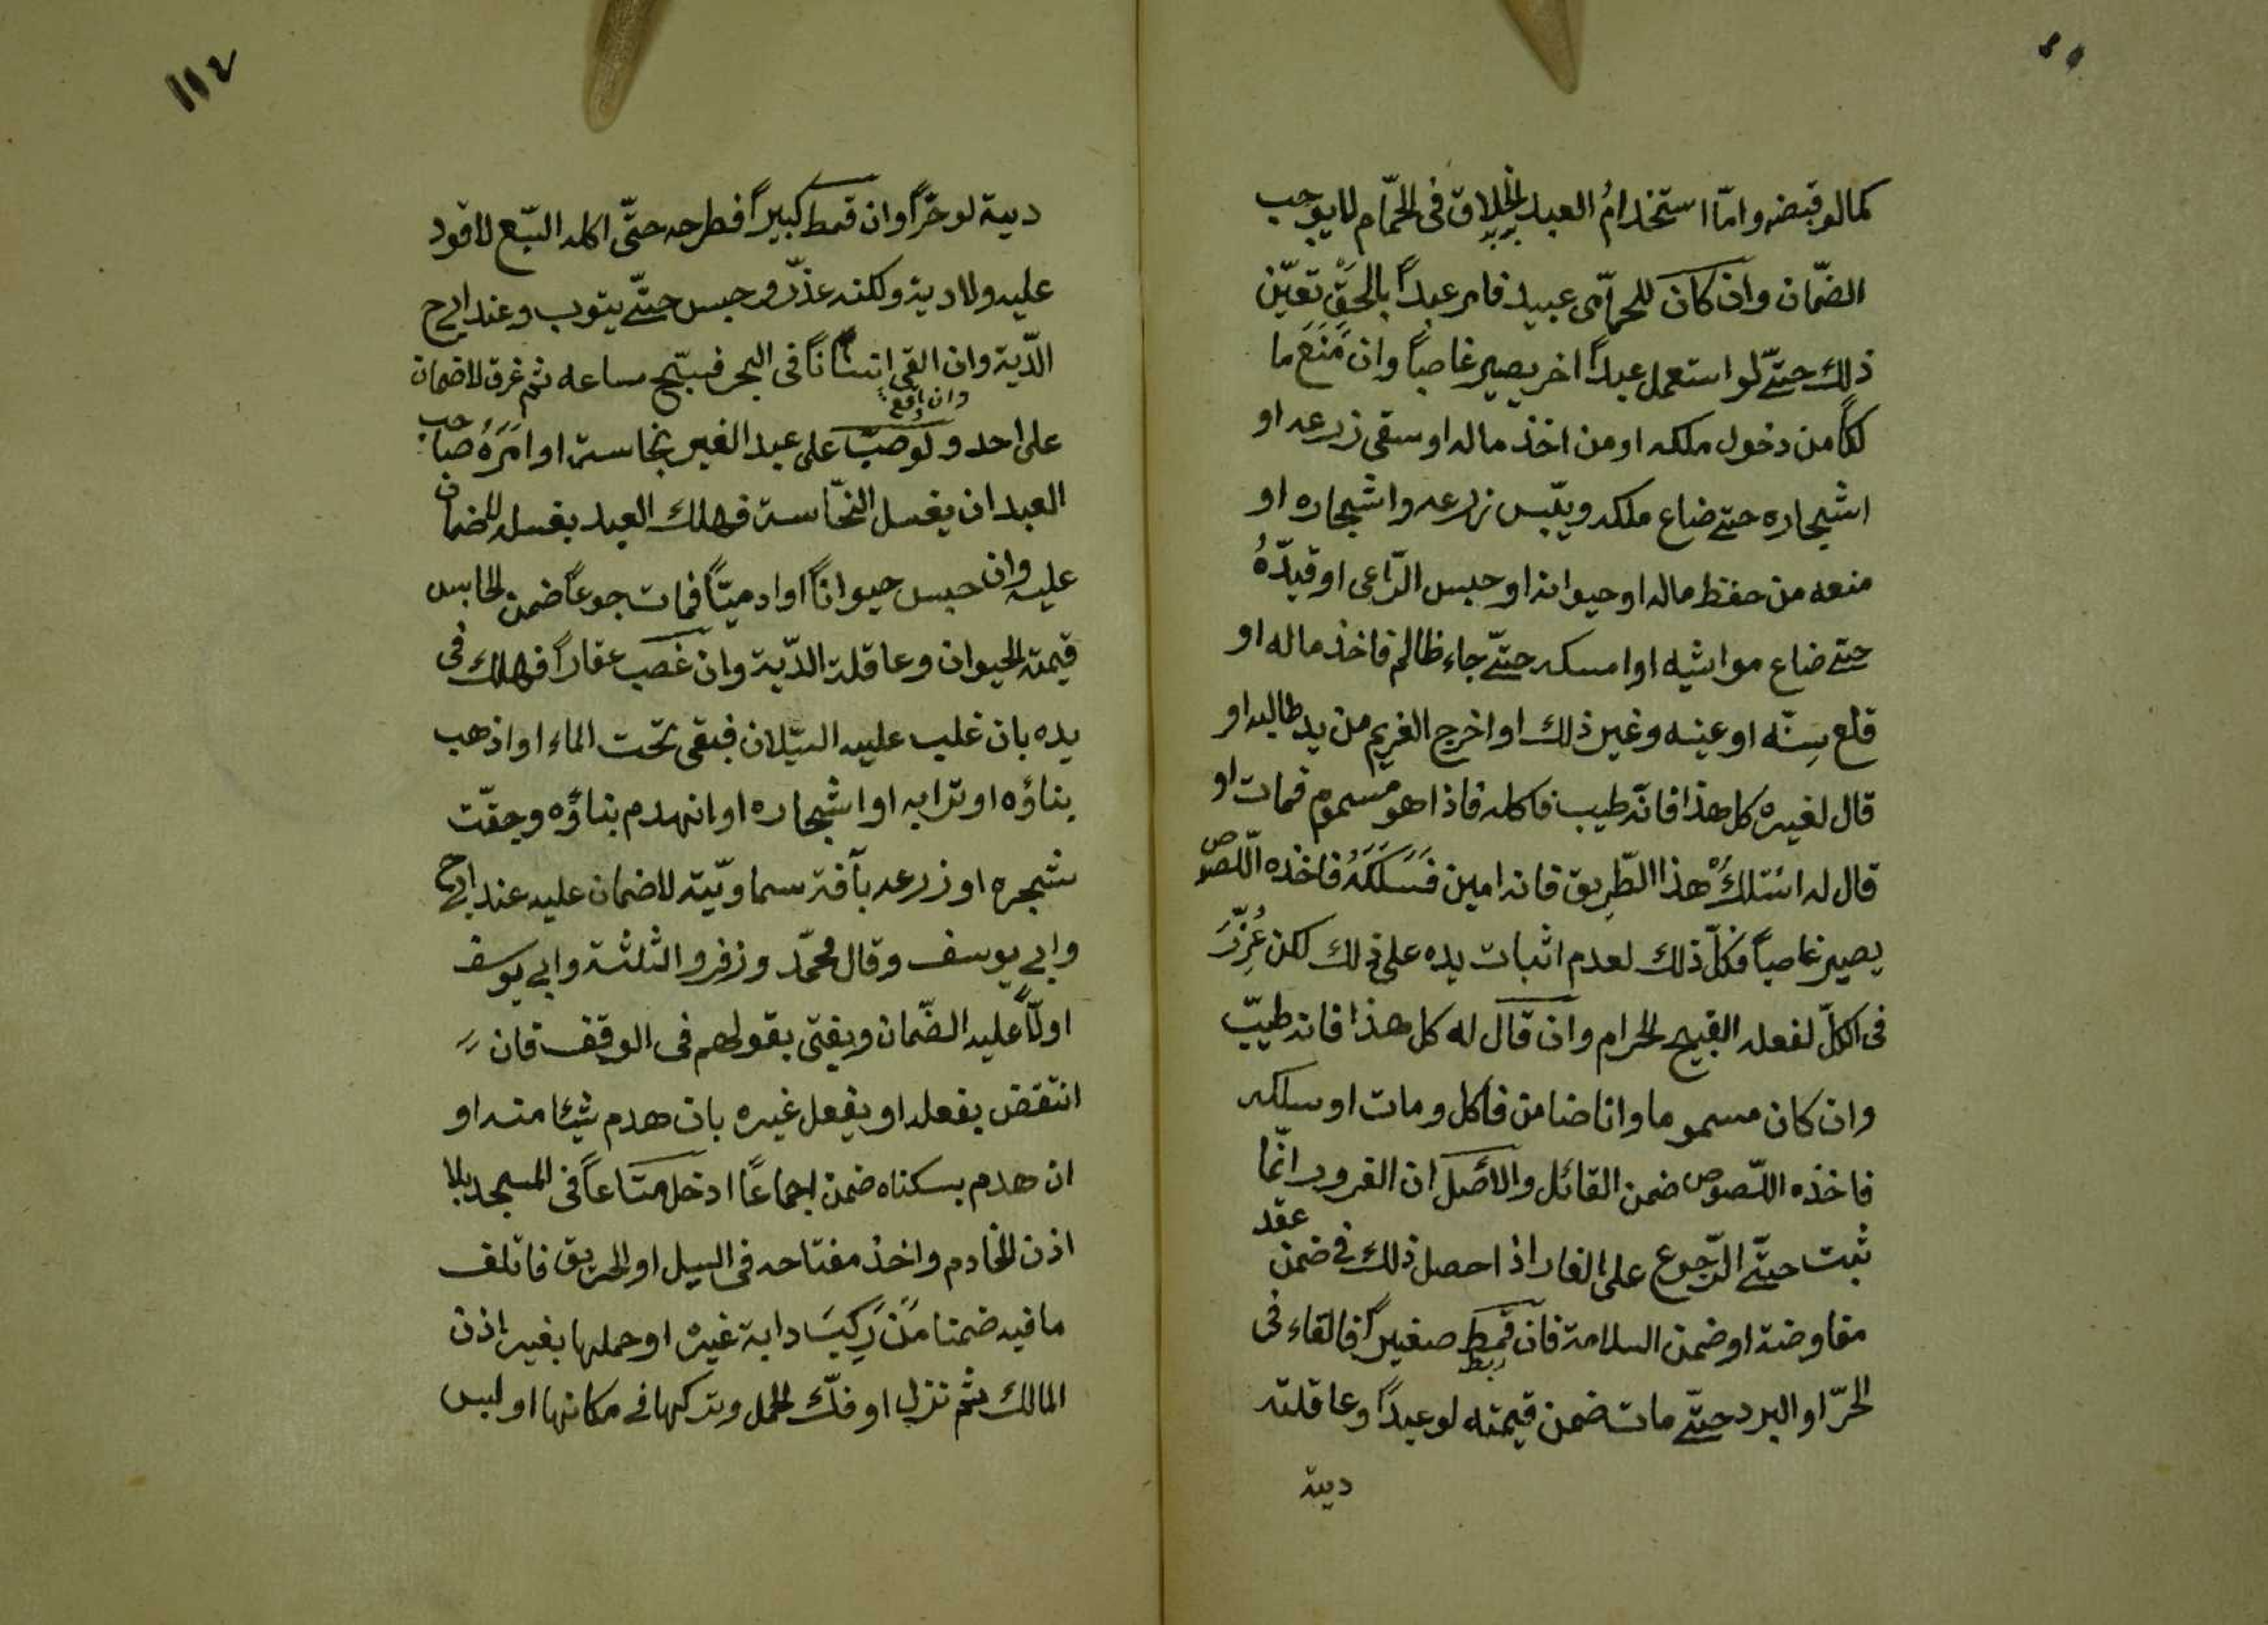 كمالو قبضه وامّا استخدامُ العبد الحلاق فى الحمّام لا يوجب
الضّمان وان كان للحمّامى عبيد فامر عبداً بالحق تعيّن
ذلك حتّے لو استعمل عبداً اخر يصير غاصباً وان مَنَعَ ما
لكاً من دخول ملكه او من اخذ ماله او سقى زرعه او
اشجاره حتے ضاع ملكه ويبّس زرعه واشجاره او
منعه من حفظ ماله او حيوانه او حبس الرّاعى او قيّدهُ
حتے ضاع مواشيه او امسكه حتّے جاء ظالم فاخذ ماله او
قلع سِنّه او عينه وغير ذلك او اخرج الغريم من يد طالبه او
قال لغيره كل هذا فانّه طيب فاكله فاذا هو مسموم فمات او
قال له اسلك هذا الطّريق فانه امين فَسَلَكَهُ فاخذه اللّصوص
يصير غاصباً فكلّ ذلك لعدم اثبات يده على ذلك لكن عُزِّرَ
فى الكلّ لفعله القبيح الحرام وان قال له كل هذا فانه طيّب
وان كان مسموما وانا ضامن فاكل ومات او سلكه
فاخذه اللّصوص ضمن القائل والاصل ان الغرور انّما
ثبت حتّے الرّجوع على الغار اذا حصل ذلك فے ضمن عقد
مفاوضة او ضمن السلامة فان قمط صغيراً فالقاء فى
ربط
الحرّ او البرد حتّے مات ضمن قيمته لو عبداً وعاقلته
دية
١١٢
دية لو حرّاً وان قمط كبيراً فطرحه حتّى اكله السّبع لا قود
عليه ولا دية ولكنه عذّر وحبس حتّے يتوب وعند ابى ح
الدّية وان القى انساناً فى البحر فسبّح ساعه ثم غرق لا ضمان
وان وقع
على احد ولو صبّ على عبد الغير نجاسة او امَرَهُ صاحب
العبد ان يغسل النجّاسة فهلك العبد بغسله لا ضمان
عليه وان حبس حيواناً او ادميّاً فمات جوعاً ضمن الحابس
قيمة الحيوان وعاقلة الدّية وان غصب عقاراً فهلك فى
يده بان غلب عليه السّيلان فبقى تحت الماء او اذهب
بناؤه او ترابه او اشجاره او انهدم بناؤه وجفّت
شجره او زرعه بآفة سماويّة لا ضمان عليه عند ابى ح
وابے يوسف وقال محمّد وزفر والثلثة وابے يوسف
اولاً عليه الضّمان ويفتى بقولهم فى الوقف فان
انتقض بفعله او بفعل غيره بان هدم شيئا منه او
ان هدم بسكناه ضمن اجماعاً ادخل متاعاً فى المسجد بلا
اذن الخادم واخذ مفتاحه فى السيل او الحريق فاتلف
ما فيه ضمنا مَنْ رَكِبَ دابة غيره او حملها بغير اذن
المالك ثم نزل او فكّ الحمل وتركها فے مكانها او لبس